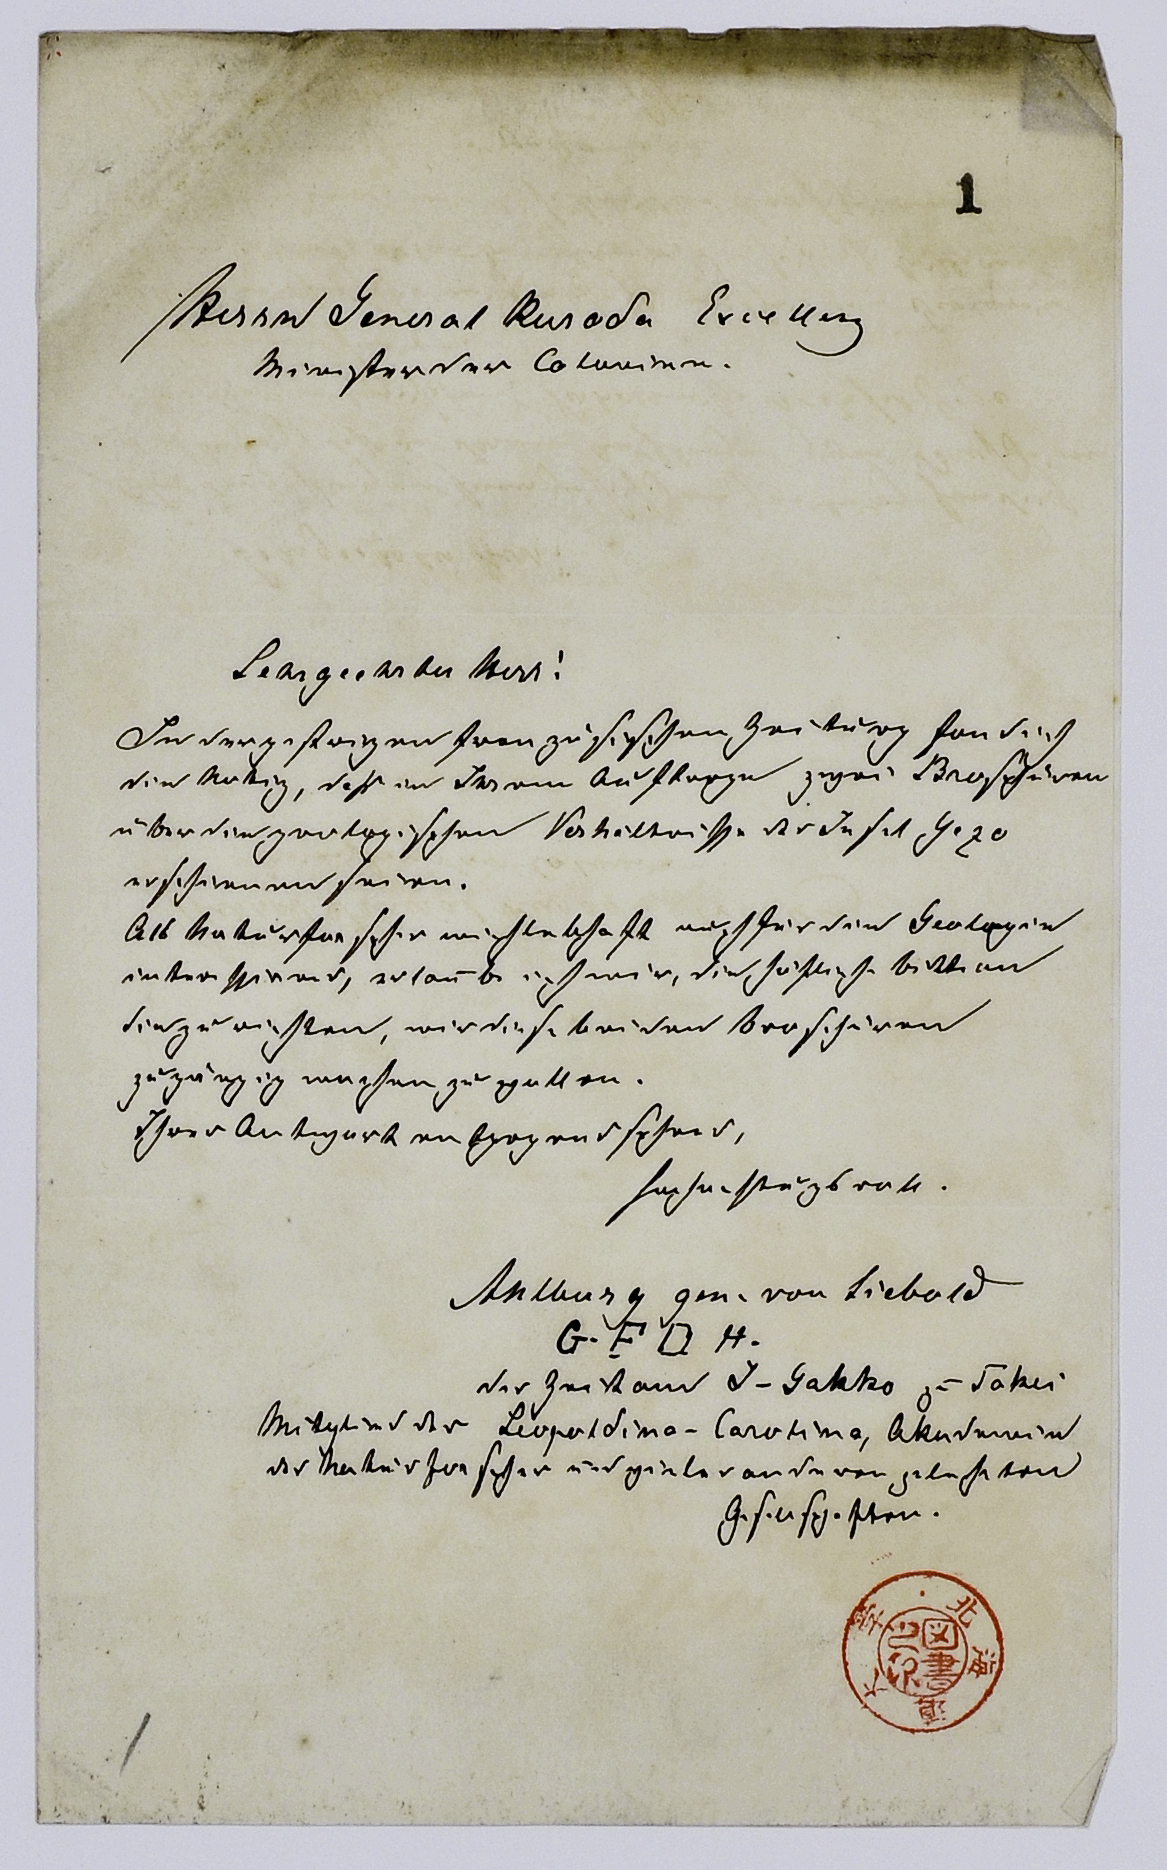 1
Herrn General Kuroda Excellenz
Minister der Colonien.
Sehrgeehrter Herr!
In der gestrigen französischen Zeitung fand ich
die Notiz, daß in Ihrem Auftrage zwei Broschüren
über die geologischen Verhältnisse der Insel Yezo
erschienen seien.
Als Naturforscher mich lebhaft auch für die Geologie
interessirend, erlaube ich mir, die höfliche Bitte an
Sie zu richten, mir diese beiden Broschüren
zugängig machen zu wollen.
Ihrer Antwort entgegensehend,
hochachtungsvoll.
Ahlburg gen. von Siebold
G. F. O H.
der Zeit am I-Gakko zu Tokei
Mitglied der Leopoldina-Carolina, Akademie
der Naturforscher und vieler anderen gelehrten
Gesellschaften.
北海道大学
図書